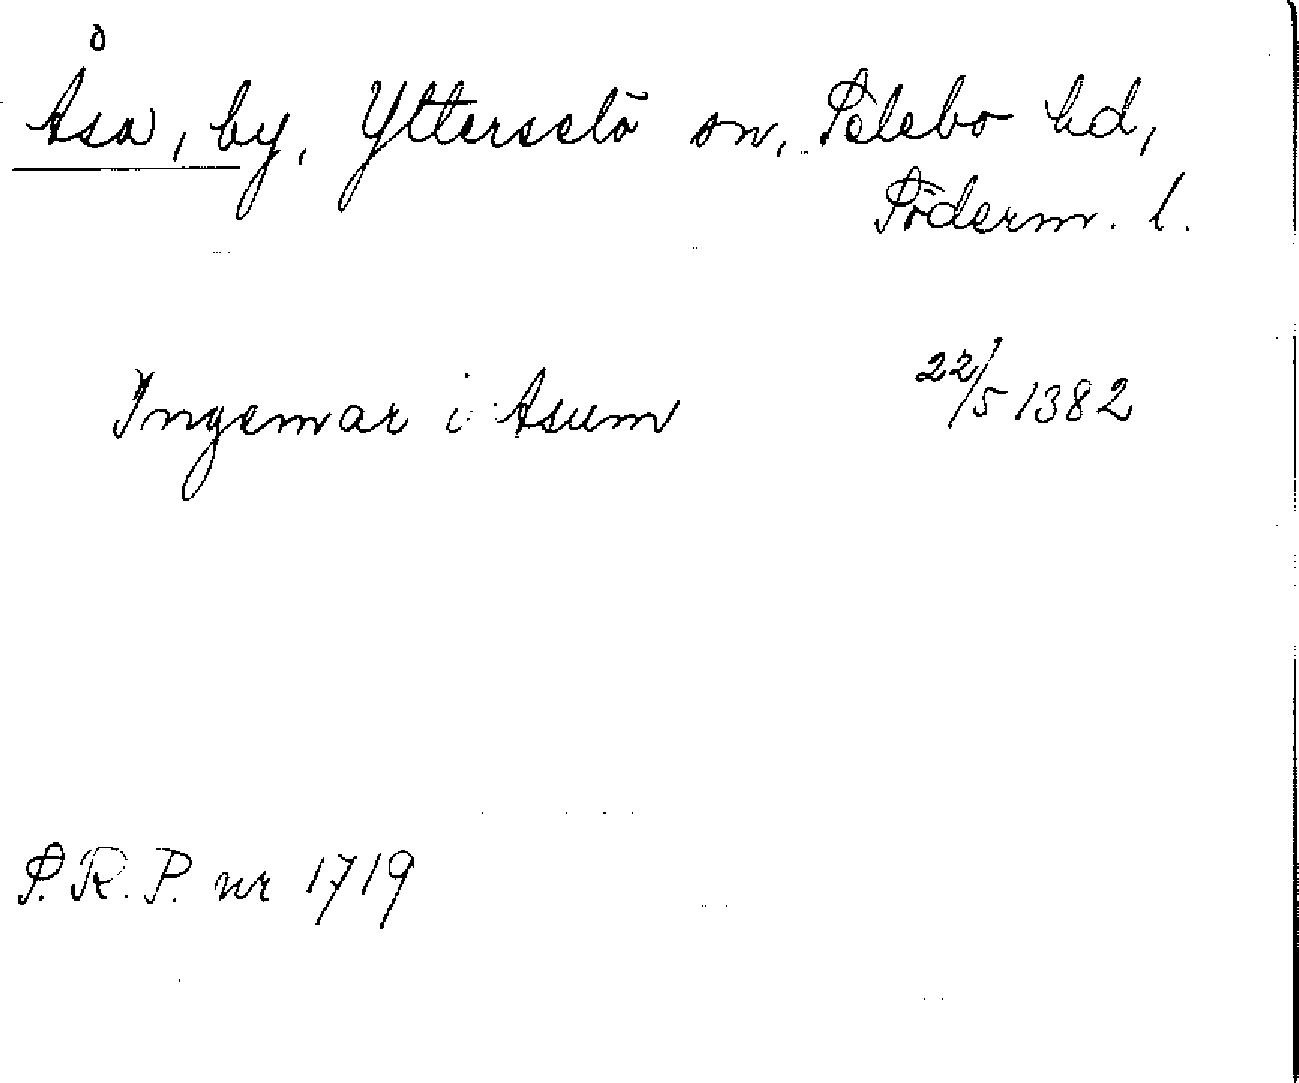 Åsa, by, Ytterselö sn, Selebo hd,
Söderm. l.
Ingemar i Asum 22/5 1382
S.R.P. nr 1719